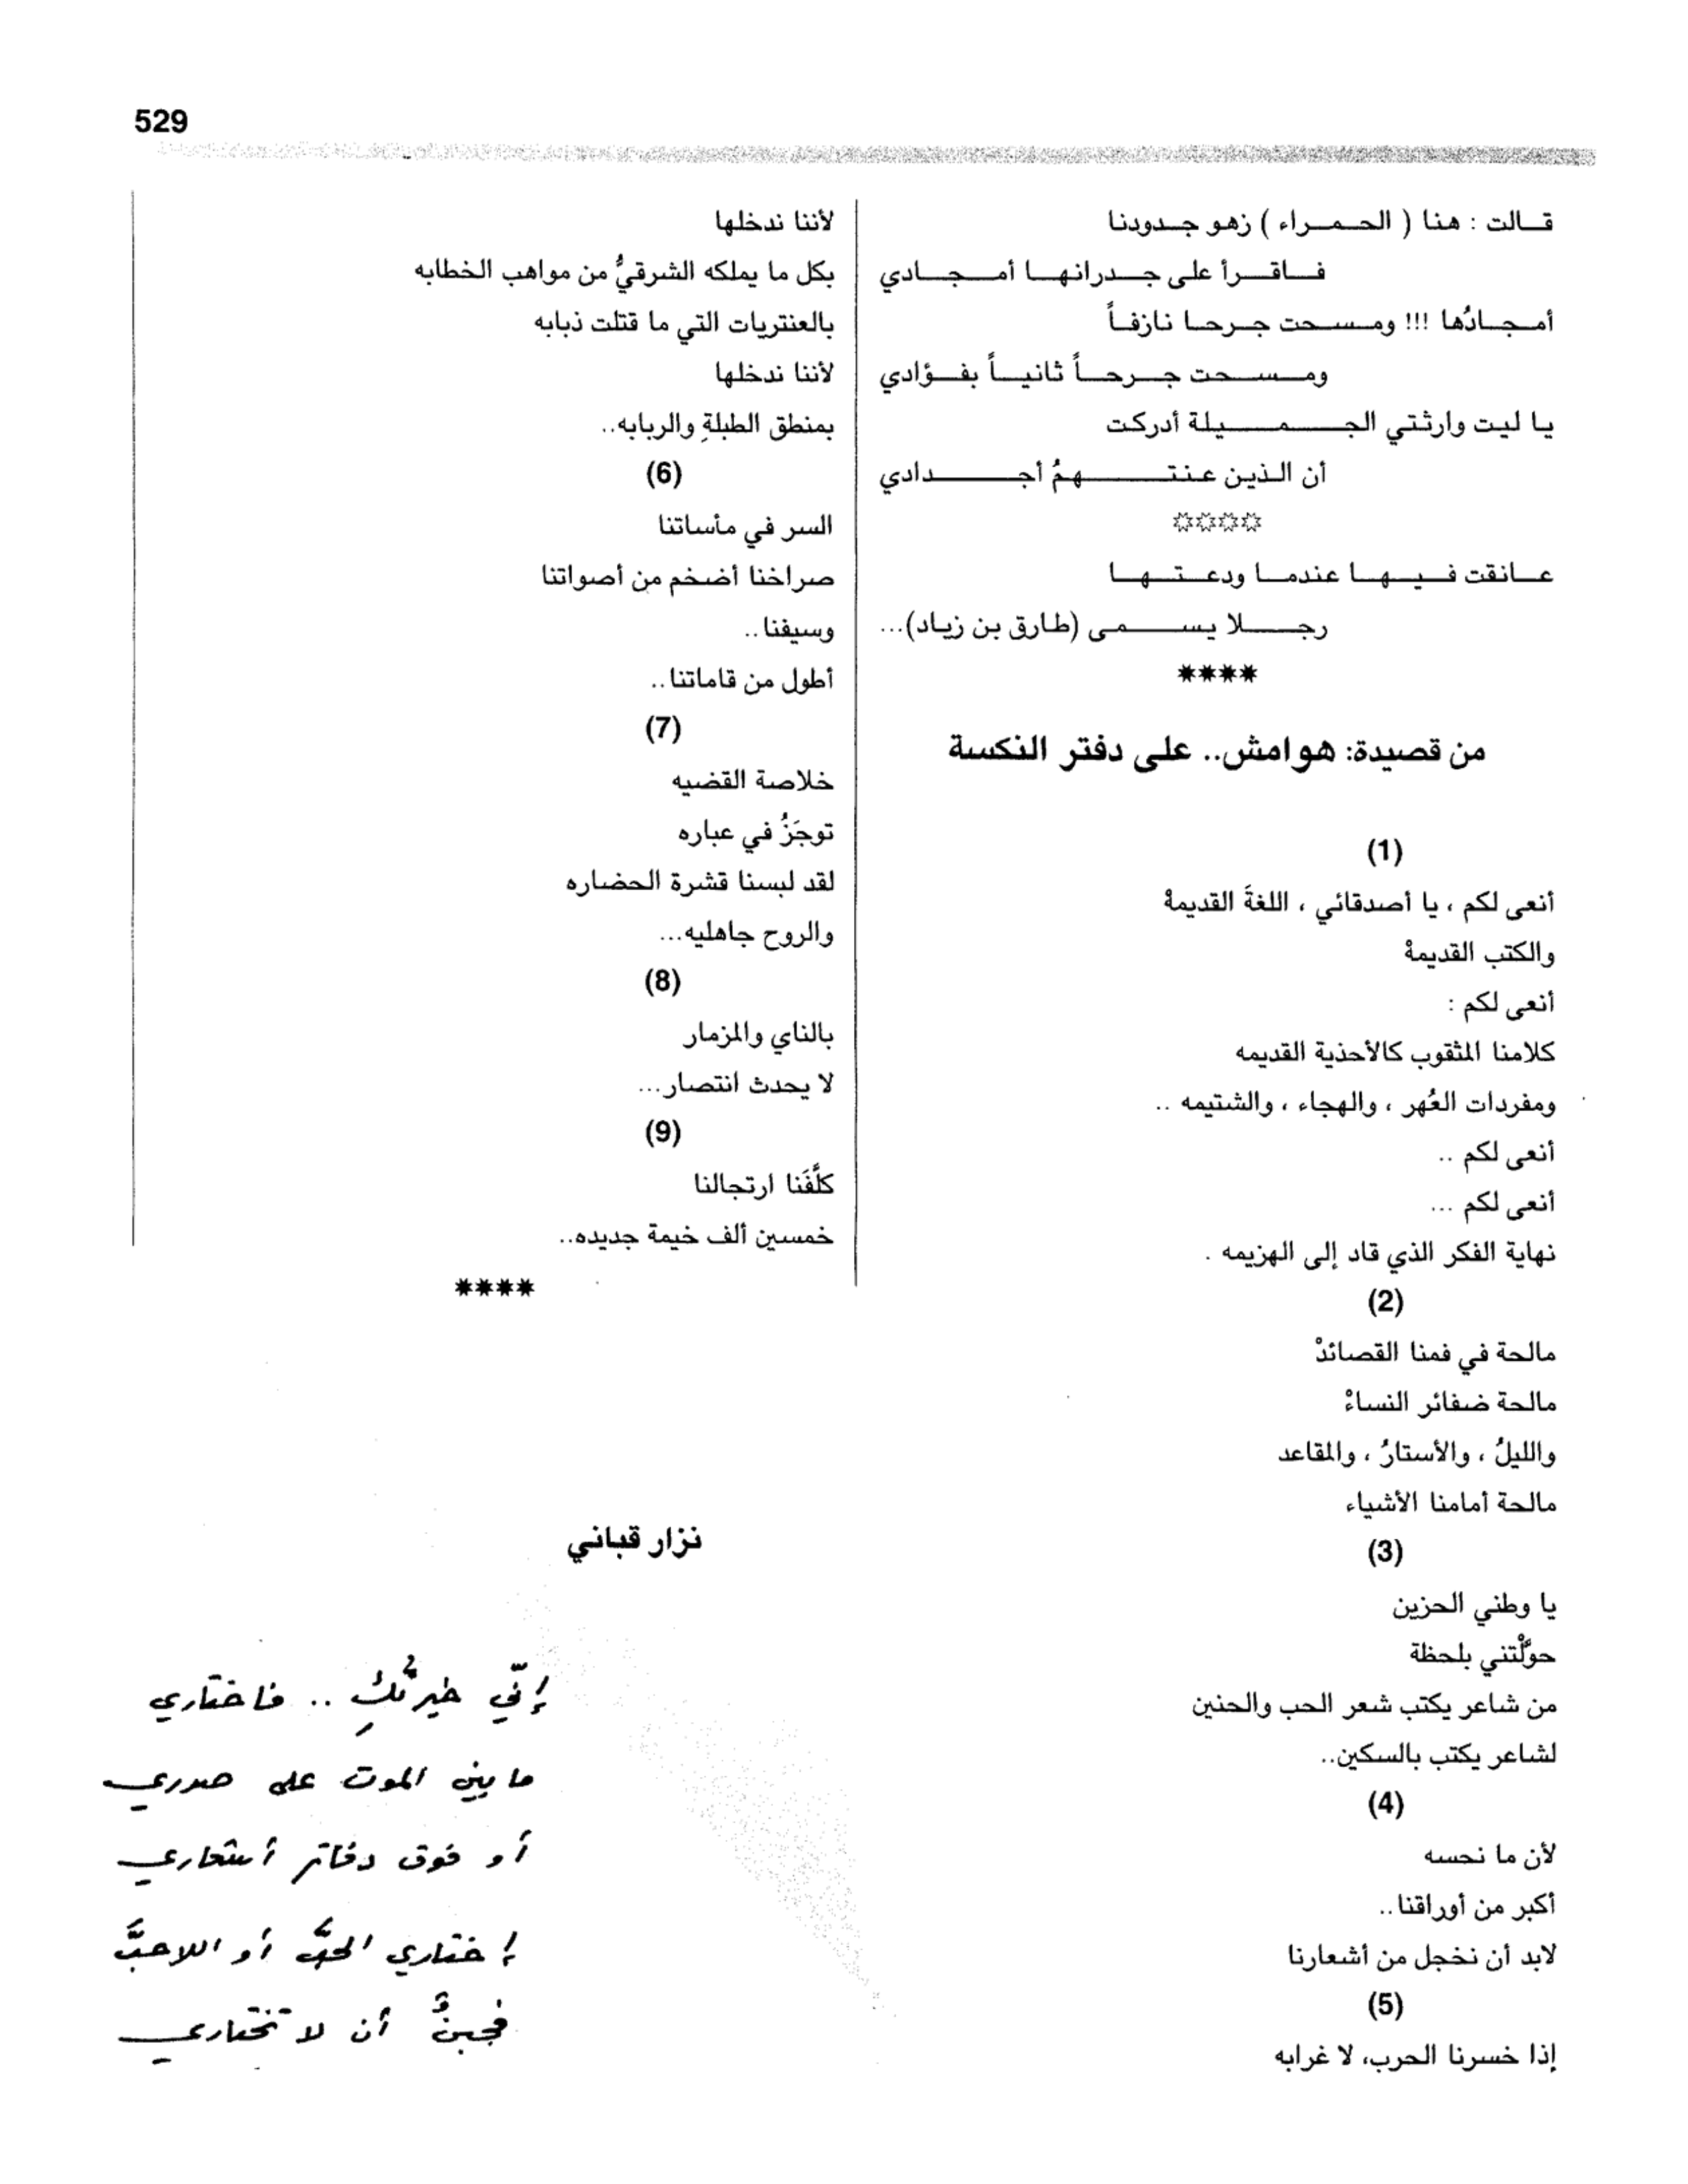 529
قالت : هنا ( الحمراء ) زهو جدودنا
فاقرأ على جدرانها أمجادي
أمجادُها !!! ومسحت جرحا نازفاً
ومسحت جرحاً ثانياً بفؤادي
يا ليت وارثتي الجميلة أدركت
أن الذين عنتهمُ أجدادي
☼☼☼☼
عانقت فيها عندما ودعتها
رجلا يسمى (طارق بن زياد)...
****
من قصيدة: هوامش.. على دفتر النكسة
(1)
أنعى لكم ، يا أصدقائي ، اللغةَ القديمةْ
والكتب القديمةْ
أنعى لكم :
كلامنا المثقوب كالأحذية القديمه
ومفردات العُهر ، والهجاء ، والشتيمه ..
أنعى لكم ..
أنعى لكم ...
نهاية الفكر الذي قاد إلى الهزيمه .
(2)
مالحة في فمنا القصائدْ
مالحة ضفائر النساءْ
والليلُ ، والأستارُ ، والمقاعد
مالحة أمامنا الأشياء
(3)
يا وطني الحزين
حوَّلْتني بلحظة
من شاعر يكتب شعر الحب والحنين
لشاعر يكتب بالسكين..
(4)
لأن ما نحسه
أكبر من أوراقنا..
لابد أن نخجل من أشعارنا
(5)
إذا خسرنا الحرب، لا غرابه
لأننا ندخلها
بكل ما يملكه الشرقيُّ من مواهب الخطابه
بالعنتريات التي ما قتلت ذبابه
لأننا ندخلها
بمنطق الطبلةِ والربابه..
(6)
السر في مأساتنا
صراخنا أضخم من أصواتنا
وسيفنا..
أطول من قاماتنا..
(7)
خلاصة القضيه
توجَزُ في عباره
لقد لبسنا قشرة الحضاره
والروح جاهليه...
(8)
بالناي والمزمار
لا يحدث انتصار...
(9)
كلَّفَنا ارتجالنا
خمسين ألف خيمة جديده..
****
نزار قباني
إنّي خيرتُكِ .. فاختاري
ما بين الموت على صدري
أو فوق دفاتر أشعاري
إختاري الحبَّ أو اللاحبَّ
فجبنٌ أن لا تختاري